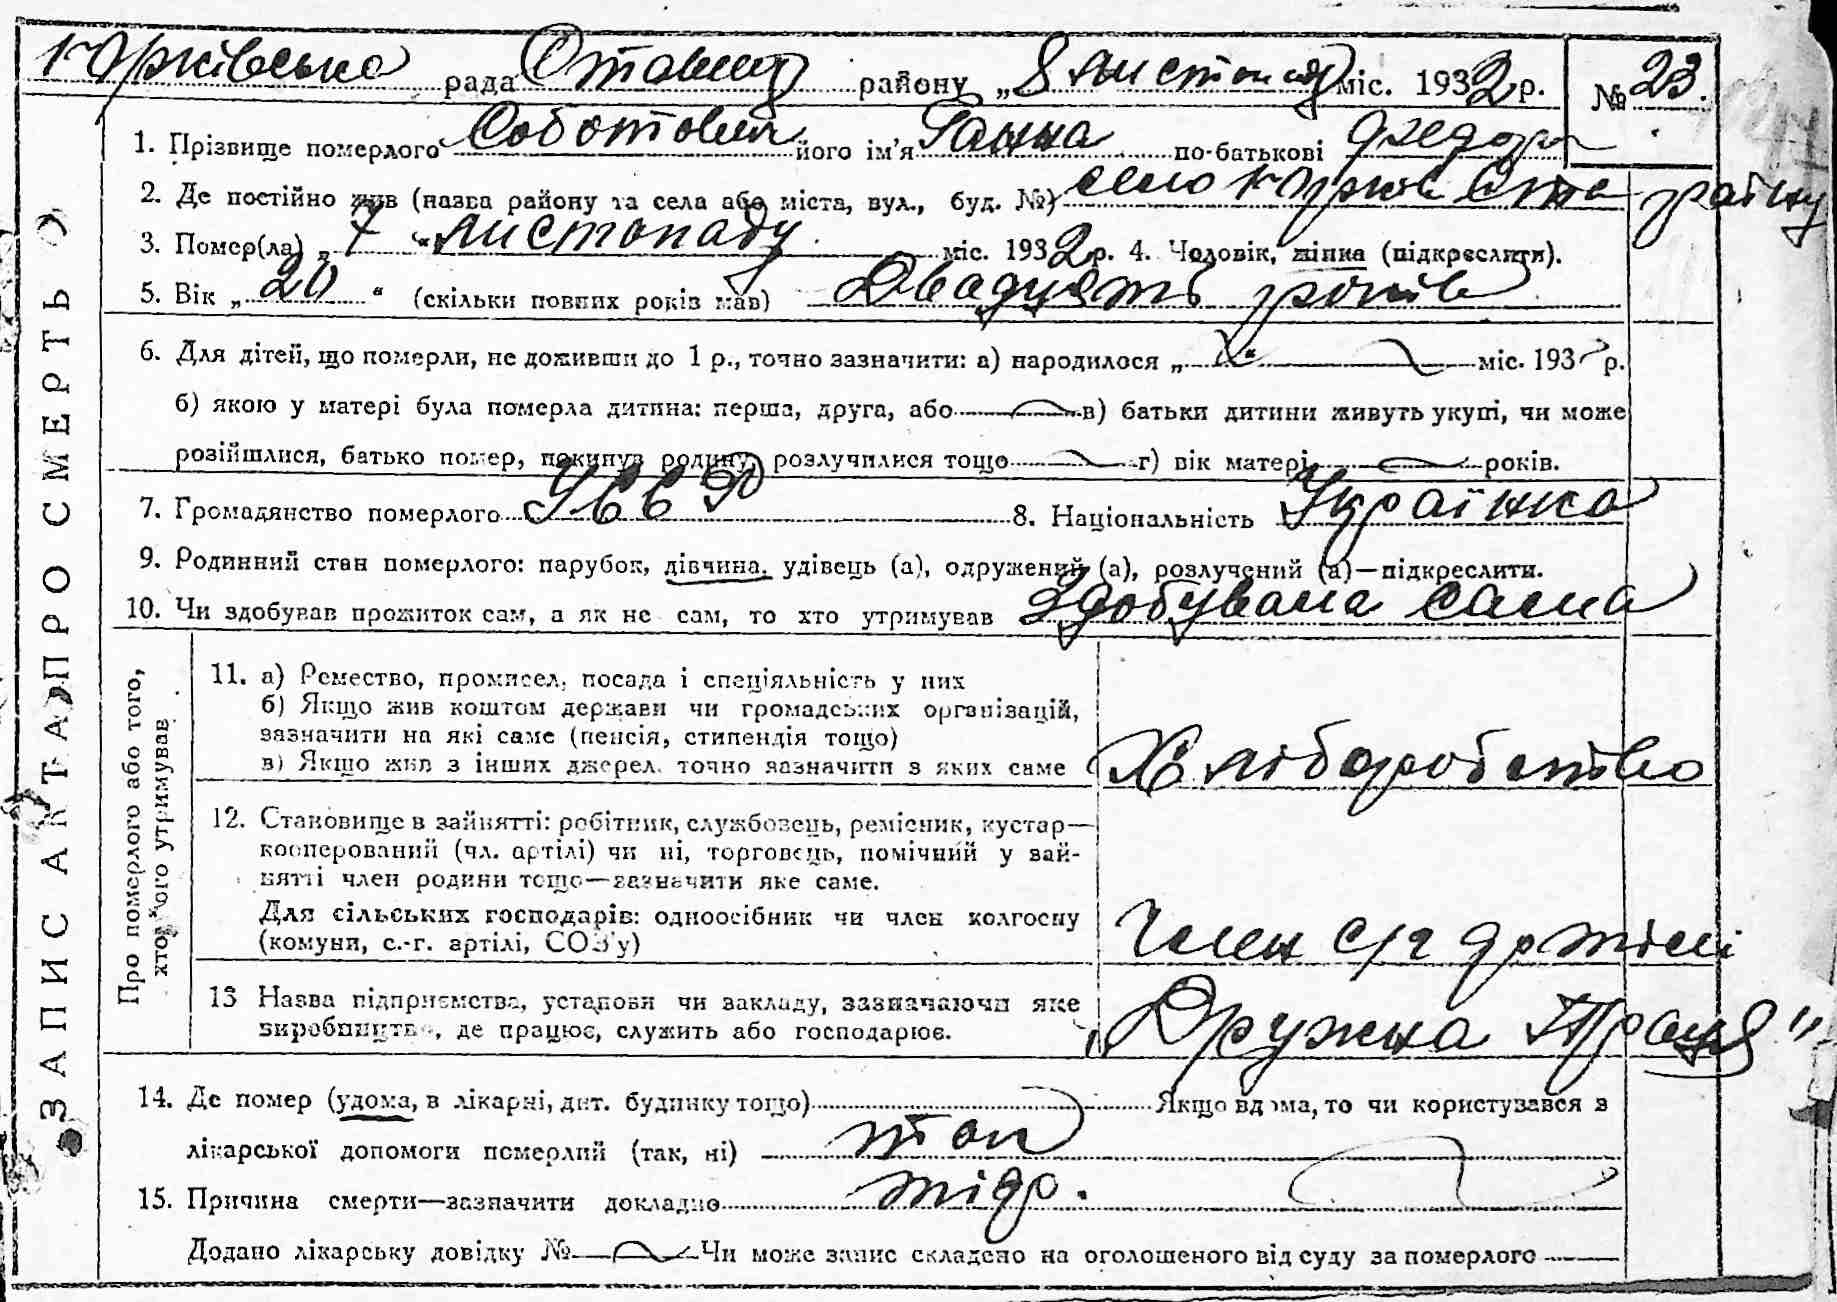 Юрківська рада Ставищ району „8 листопад міс. 1932 р. № 23.
1. Прізвище померлого його ім'я Ганна по-батькові Федор
2. Де постійно жив (назва району та села або міста, вул., буд. №) село Юрків Став району
3. Помер(ла) „7“ листопаду міс. 1932 р. 4. Чоловік, жінка (підкреслити).
5. Вік „20“ (скільки повних років мав) Двадцять років
6. Для дітей, що померли, не доживши до 1 р., точно зазначити: а) народилося „ “ міс. 193 р.
б) якою у матері була померла дитина: перша, друга, або в) батьки дитини живуть укупі, чи може
розійшлися, батько помер, покинув родину, розлучилися тощо г) вік матері років.
7. Громадянство померлого УССР 8. Національність Українка
9. Родинний стан померлого: парубок, дівчина, удівець (а), одружений (а), розлучений (а)—підкреслити.
10. Чи здобував прожиток сам, а як не сам, то хто утримував Здобувала сама
ЗАПИС АКТА ПРО СМЕРТЬ
Про померлого або того,
хто його утримував
11. а) Ремество, промисел, посада і спеціяльність у них
б) Якщо жив коштом держави чи громадських організацій,
зазначити на які саме (пенсія, стипендія тощо)
в) Якщо жив з інших джерел, точно зазначити з яких саме Хліборобство
12. Становище в зайнятті: робітник, службовець, ремісник, кустар—
кооперований (чл. артілі) чи ні, торговець, помічний у зай-
нятті член родини тощо—зазначити яке саме.
Для сільських господарів: одноосібник чи член колгоспу
(комуни, с.-г. артілі, СОЗ'у) Член с/г артілі
13 Назва підприємства, установи чи закладу, зазначаючи яке
виробництво, де працює, служить або господарює. „Дружна Праця"
14. Де помер (удома, в лікарні, дит. будинку тощо) Якщо вдома, то чи користувався з
лікарської допомоги померлий (так, ні) так
15. Причина смерти—зазначити докладно
Додано лікарську довідку № Чи може запис складено на оголошеного від суду за померлого